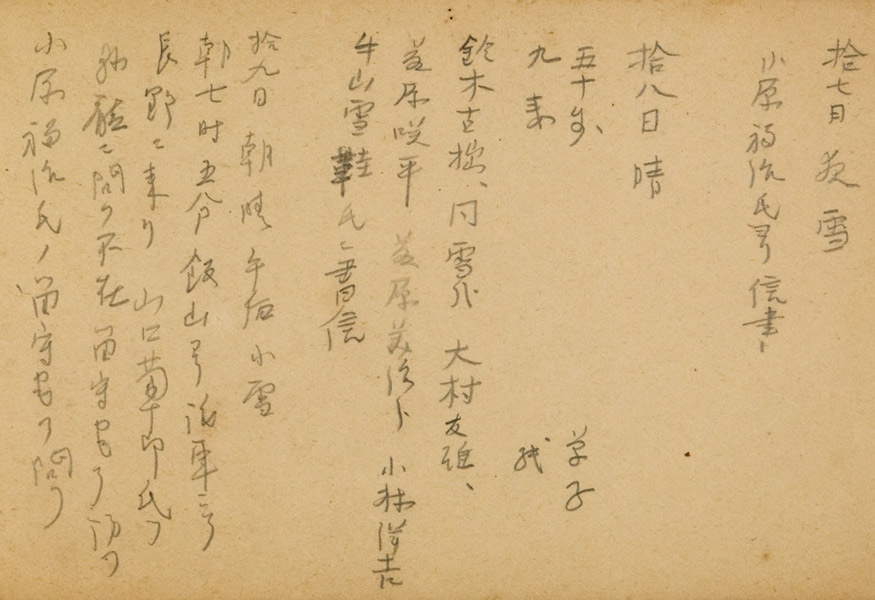 拾七日 夜 雪
小原福治氏ヨリ信書
拾八日 晴
五十歩 草子
九 来
鈴木古拙、同雪 大村友雄、
原咲平 原 治ト 小林洋吉
牛山雪鞋氏ニ書信
拾九日 朝晴 午后小雪
朝七时五分飯山ヨリ汽車ニテ
長野ニ来リ 山口菊十郎氏ヲ
ニ問フ不在留守宅ヲ訪フ
小原福治氏ノ留守宅ヲ問フ